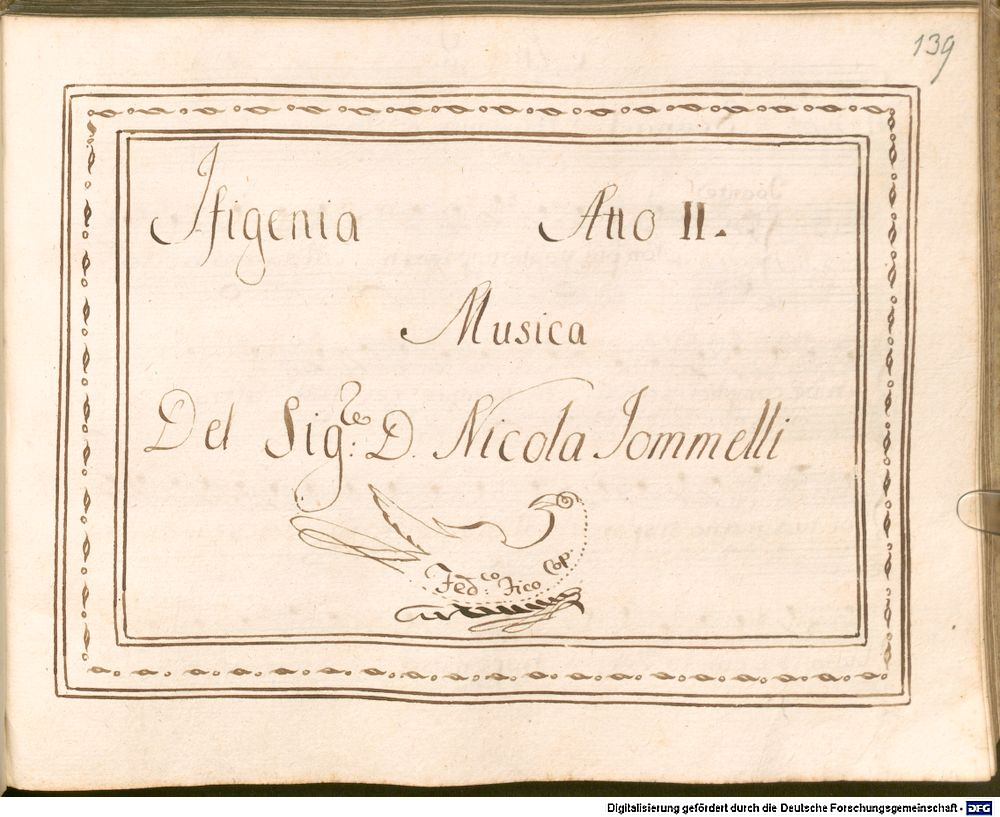 139
Ifigenia Atto II.
Musica
Del Sig.re D. Nicola Jommelli
Fed.co Fico Cop.
Digitalisierung gefördert durch die Deutsche Forschungsgemeinschaft - DFG